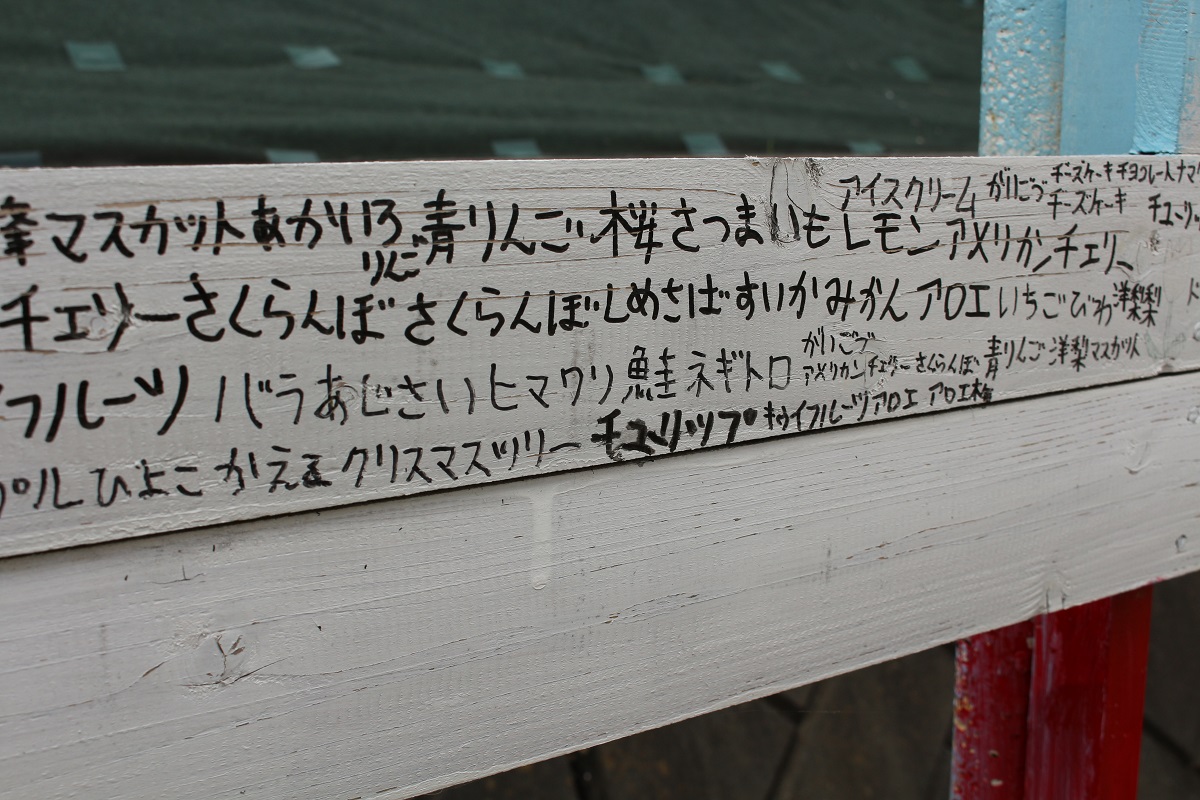 峯マスカットあかりいろ青りんご桜さつまいもレモンアメリカンチェリー
アイスクリームがりごづチーズケーキチョコレートナマ
チーズケーキ
りんご
チェリーさくらんぼさくらんぼしめさばすいかみかんアロエいちごびわ洋梨梨
フルーツバラあじさいヒマワリ鮭ネギトロ
がりごづ
アメリカンチェリーさくらんぼ青りんご洋梨マスカット
プルひよこかええクリスマスツリーチューリップキウイフルーツアロエアロエ桜